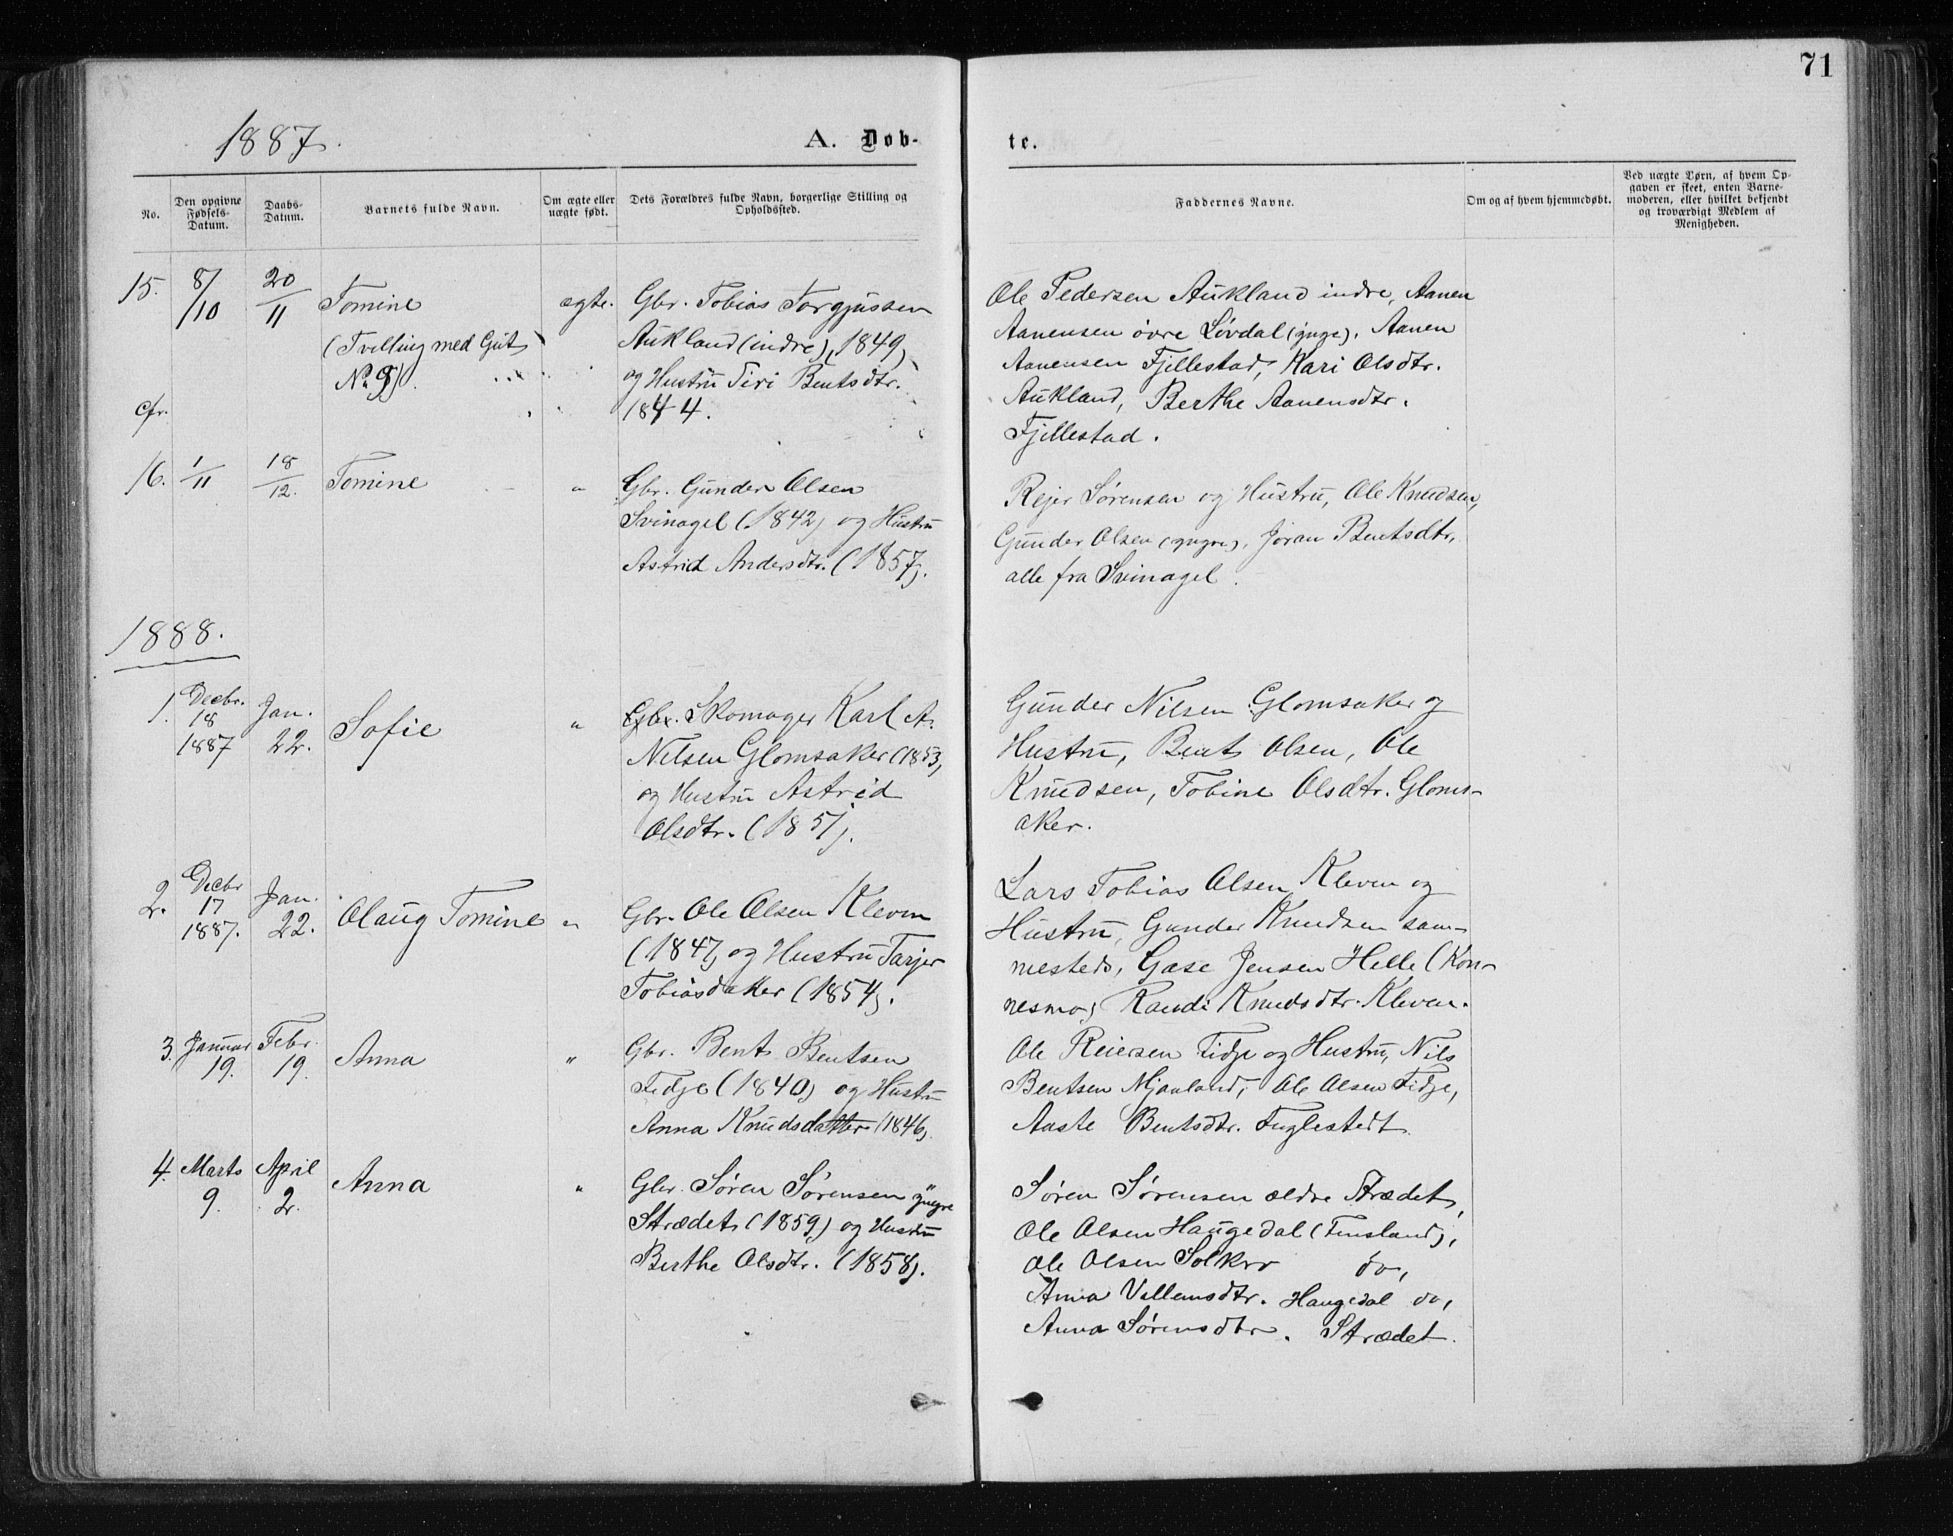 71
1887.
A. Døb-
te.
No.
Den opgivne
Fødsels-
Datum.
Daabs-
Datum.
Barnets fulde Navn.
Om ægte eller
uægte født.
Dets Forældres fulde Navn, borgerlige Stilling og
Opholdssted.
Faddernes Navne.
Om og af hvem hjemmedøbt.
Ved uægte Børn, af hvem Op-
gaven er skeet, enten Barne-
moderen, eller hvilket bekjendt
og troværdigt Medlem af
Menigheden.
15.
8/10
20/11
Tomine
(Tvilling med Gut
No 9).
cfr.
ægte.
Gbr. Tobias Torgjussen
Aukland (indre), 1849,
og Hustru Siri Bentsdtr.
1844.
Ole Pedersen Aukland indre, Aanen
Aanensen övre Lövdal (ynge). Aanen
Aanensen Fjellestad, Kari Olsdtr.
Aukland, Berthe Aanensdtr.
Fjellestad.
16.
1/11
18/12.
Tomine
"
Gbr. Gunder Olsen
Svinagel (1842) og Hustru
Astrid Andersdtr. (1857).
Rejer Sørensen og Hustru, Ole Knudsen,
Gunder Olsen (yngre), Joran Bentsdtr,
alle fra Svinagel.
1888.
1.
Decbr.
18
1887
Jan.
22.
Sofie
"
Gbr. Skomager Karl A.
Nilsen Glomsaker (1853)
og Hustru Astrid
Olsdtr. (1851).
Gunder Nilsen Glomsaker og
Hustru, Bent Olsen, Ole
Knudsen, Tobine Olsdtr. Gloms-
aker.
2.
Decbr
17
1887.
Jan.
22.
Olaug Tomine
"
Gbr. Ole Olsen Kleven
(1847) og Hustru Tarjer
Tobiasdatter (1854).
Lars Tobias Olsen Kleven og
Hustru, Gunder Knudsen sam-
mesteds, Gase Jensen Helle (Kon-
nesmo) Randi Knudsdtr. Kleven.
3.
Januar
19.
Febr.
19.
Anna
"
Gbr. Bent Bentsen
Fidje (1840) og Hustru
Anna Knudsdatter (1846).
Ole Reiersen Fidje og Hustru, Nils
Bentsen Mjaaland, Ole Olsen Fidje,
Aaste Bentsdtr. Fuglestedt
4.
Marts
9.
April
2.
Anna
"
Gbr. Søren Sørensen yngre
Strædet (1859) og Hustru
Berthe Olsdtr. (1858).
Søren Sørensen ældre Strædet,
Ole Olsen Haugedal (Finsland),
Ole Olsen do,
Anna Villemsdtr. Haugedal do,
Anna Sørensdtr. Strædet.